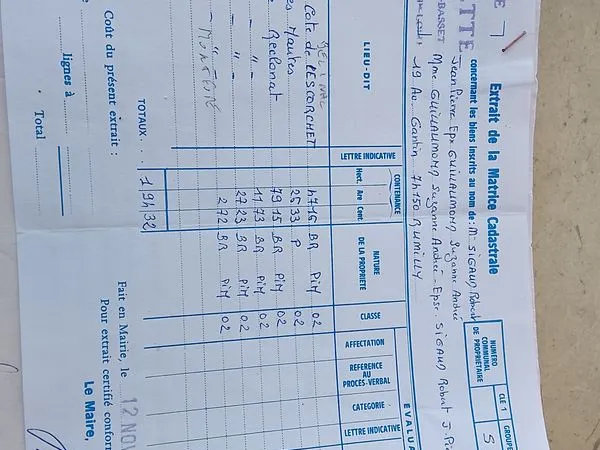 Extrait de la Matrice Cadastrale
concernant les biens inscrits au nom de : M. SIGAUD Robert
Jean Pierre Eps GUILLAUMOND Suzanne Andrée
Mme GUILLAUMOND Suzanne Andrée - Epse. SIGAUD Robert J. Pi
19 Av. Gantin 74150 RUMILLY
NUMERO COMMUNAL DE PROPRIÉTAIRE
CLÉ 1
GROUPE
5
ÉVALUA
LIEU-DIT
LETTRE INDICATIVE
CONTENANCE
Hect. Are Cent.
NATURE DE LA PROPRIÉTÉ
CLASSE
AFFECTATION
REFERENCE AU PROCÈS-VERBAL
CATEGORIE
LETTRE INDICATIVE
Cote de LESCORCHET 47-16 BR PIM 02
es Hautes 25 33 P 02
Reclonat 79 15 BR PIM 02
- " - 11 73 BR PIM 02
- " - 27 23 BR PIM 02
- " - 2 72 BR PIM 02
TOTAUX . . . 1 94 32
Coût du présent extrait :
lignes à
Total
Fait en Mairie, le 12 NOV
Pour extrait certifié conform
Le Maire,